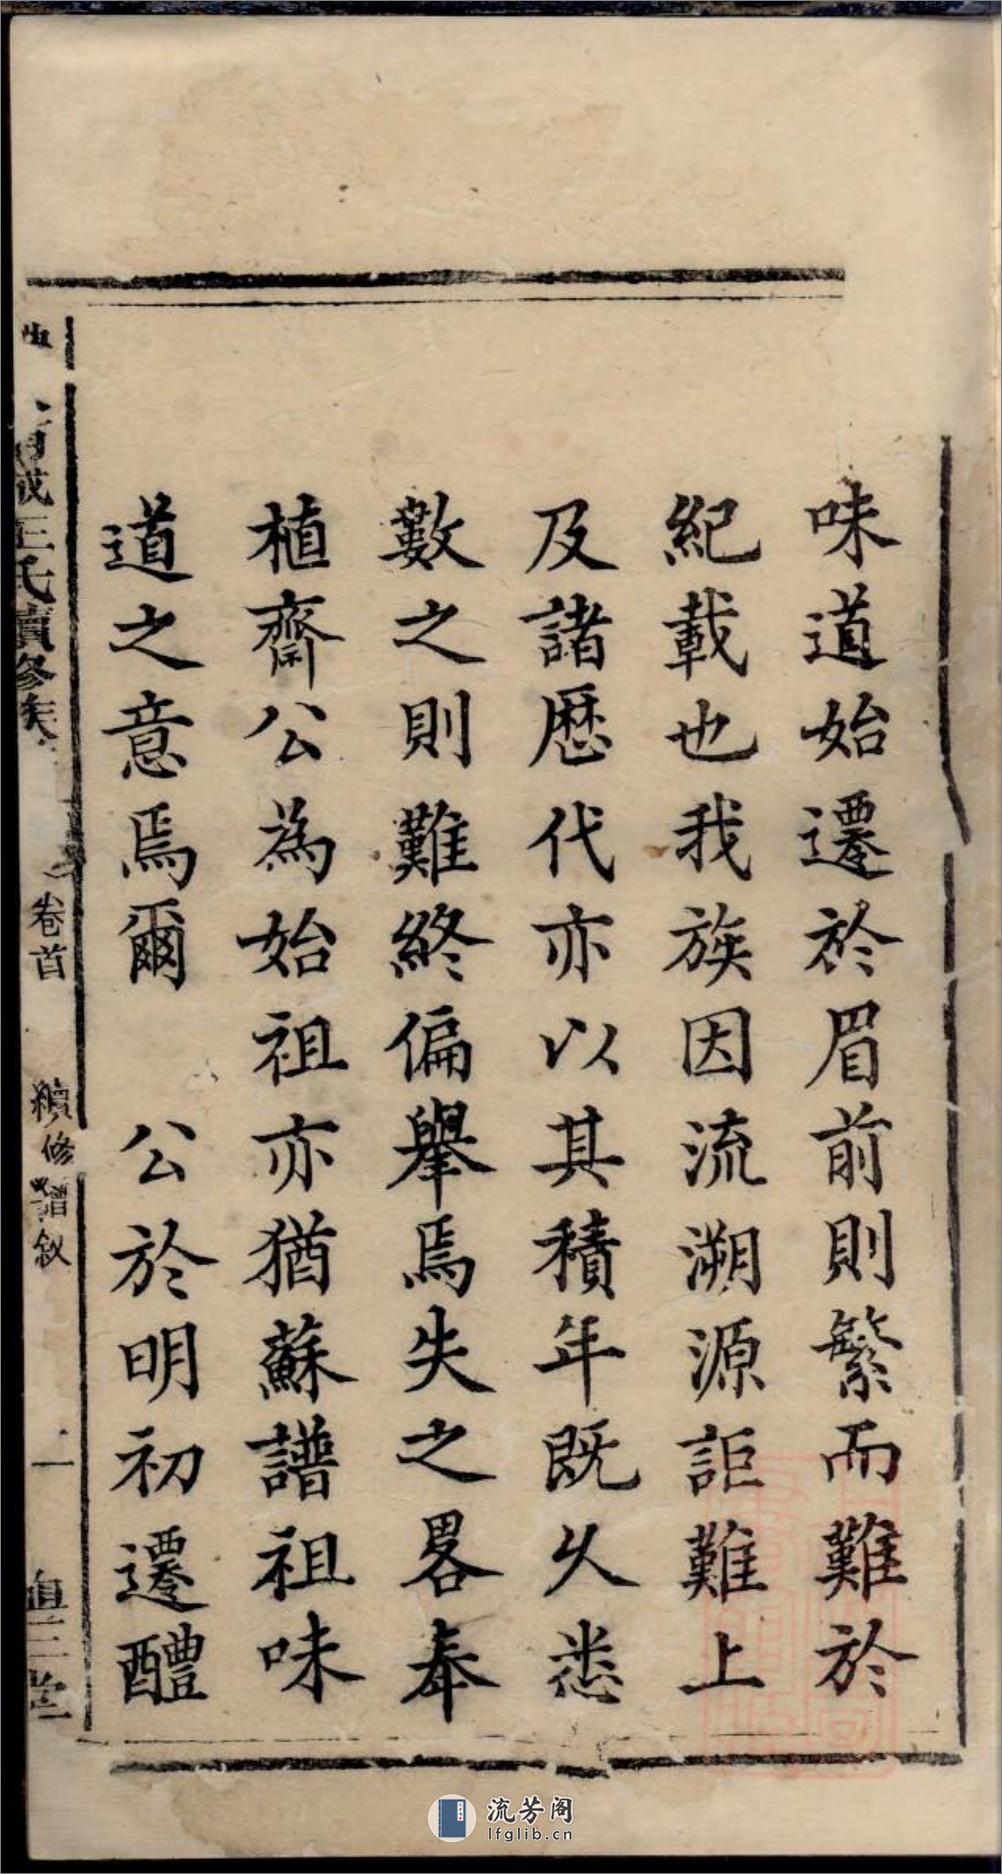 味道始遷於眉前則繁而難於
紀載也我族因流溯源詎難上
及諸歷代亦以其積年既久悉
數之則難終偏舉焉失之畧奉
植齋公為始祖亦猶蘇譜祖味
道之意焉爾　公於明初遷醴
王氏續修族
卷首
續修譜敘
二
三堂
流芳阁
lfglib.cn